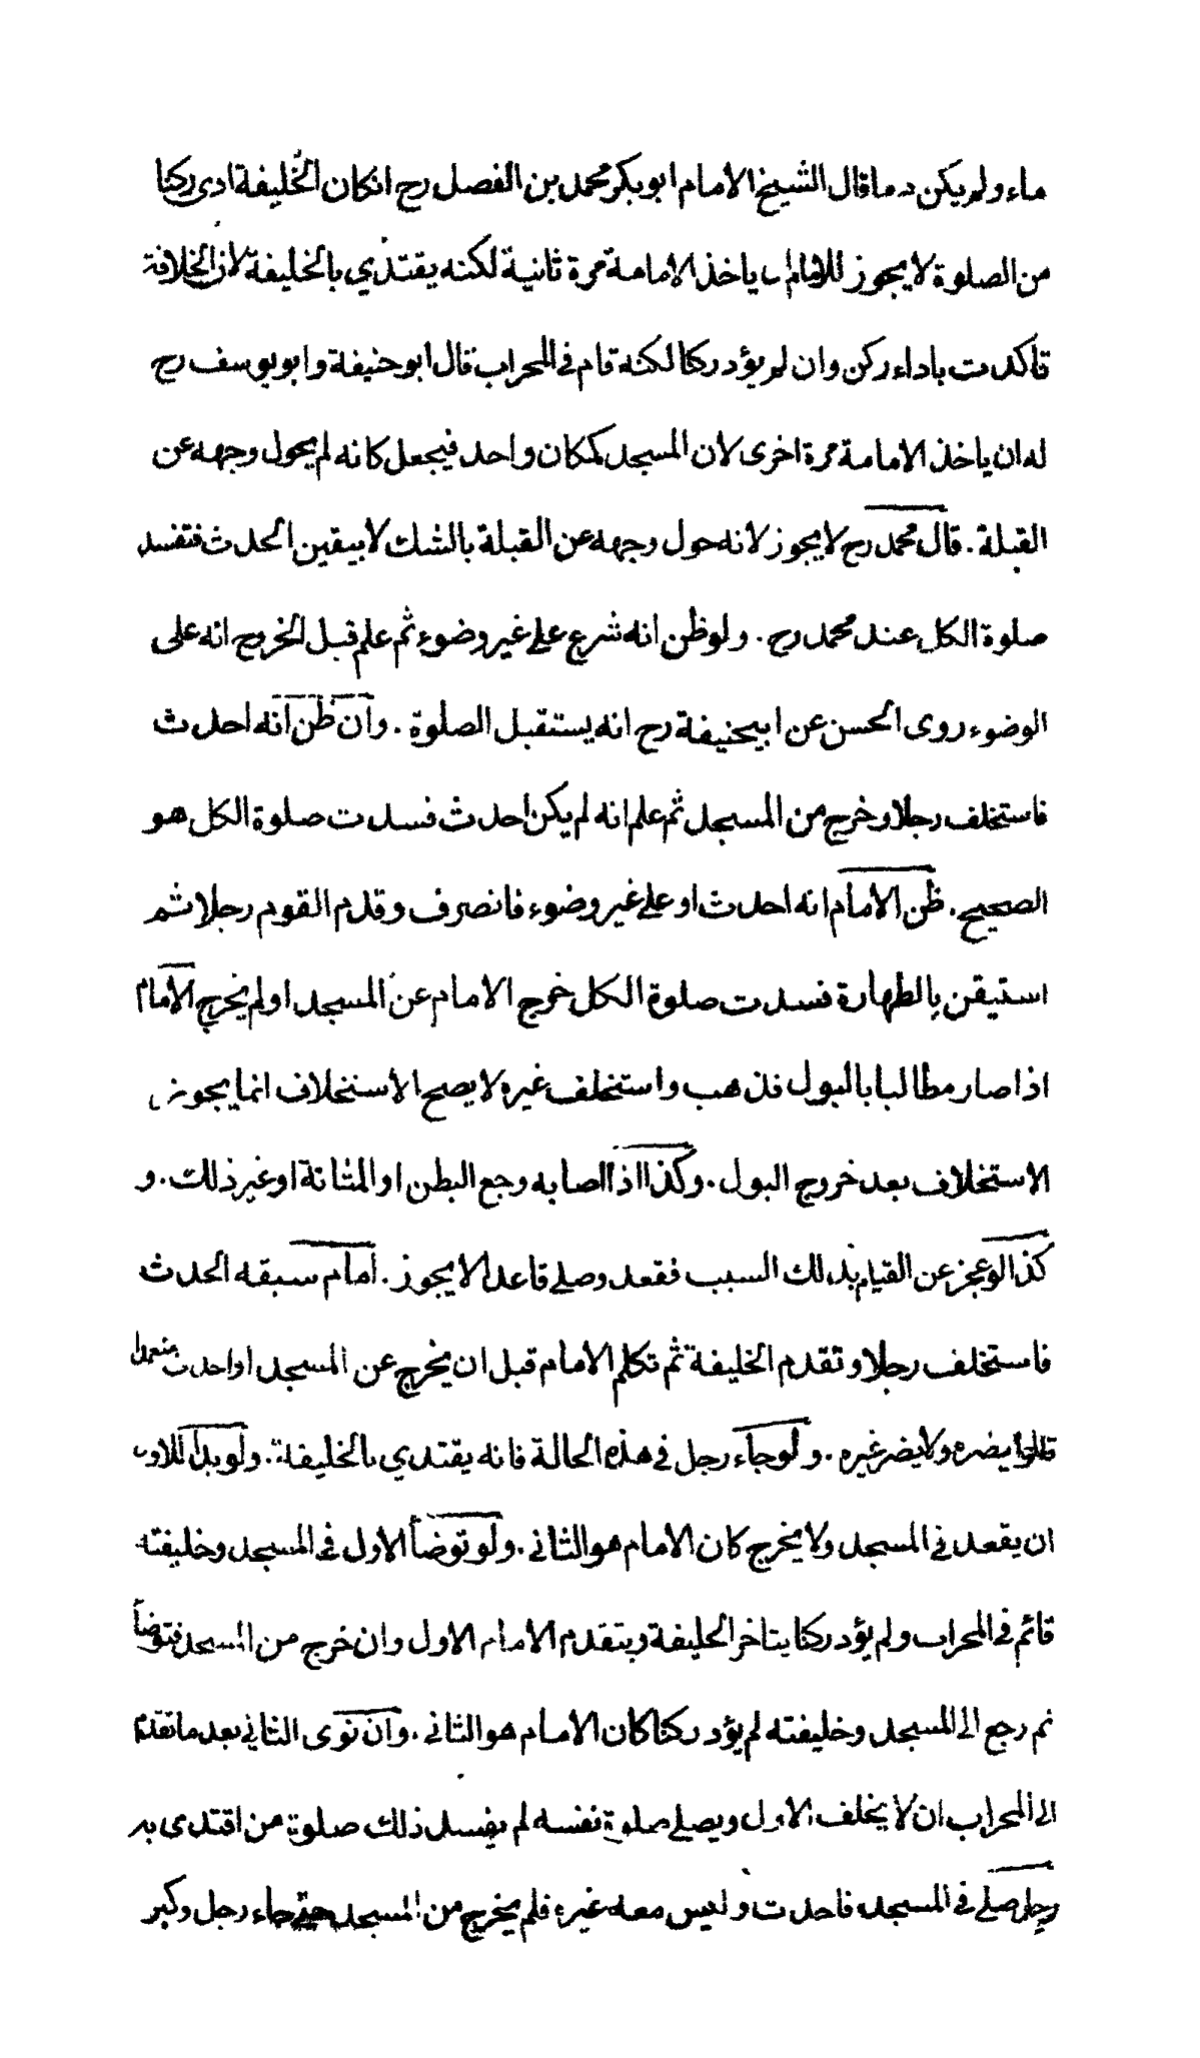 ماء ولم يكن دما قال الشيخ الامام ابو بكر محمد بن الفضل رح ان كان الخليفة ادى ركنا
من الصلوة لا يجوز للامام ان ياخذ الامامة مرة ثانية لكنه يقتدي بالخليفة لان الخلافة
تاكدت باداء ركن وان لم يؤد ركنا لكنه قام في المحراب قال ابو حنيفة وابو يوسف رح
له ان ياخذ الامامة مرة اخرى لان المسجد كمكان واحد فيجعل كانه لم يحول وجهه عن
القبلة . قال محمد رح لا يجوز لانه حول وجهه عن القبلة بالشك لا بيقين الحدث فتفسد
صلوة الكل عند محمد رح . ولو ظن انه شرع على غير وضوء ثم علم قبل الخروج انه على
الوضوء روى الحسن عن ابيحنيفة رح انه يستقبل الصلوة . وان ظن انه احدث
فاستخلف رجلا وخرج من المسجد ثم علم انه لم يكن احدث فسدت صلوة الكل هو
الصحيح . ظن الامام انه احدث او على غير وضوء فانصرف وقدم القوم رجلا ثم
استيقن بالطهارة فسدت صلوة الكل خرج الامام عن المسجد او لم يخرج الامام
اذا صار مطالبا بالبول فذهب واستخلف غيره لا يصح الاستخلاف انما يجوز
الاستخلاف بعد خروج البول . وكذا اذا اصابه وجع البطن او المثانة او غير ذلك . و
كذا لو عجز عن القيام بذلك السبب فقعد وصلى قاعدا لا يجوز . امام سبقه الحدث
فاستخلف رجلا وتقدم الخليفة ثم تكلم الامام قبل ان يخرج عن المسجد او احدث متعمدا
قالوا يضره ولا يضر غيره . ولو جاء رجل في هذه الحالة فانه يقتدي بالخليفة . ولو بدا للاول
ان يقعد في المسجد ولا يخرج كان الامام هو الثاني . ولو توضأ الاول في المسجد وخليفته
قائم في المحراب ولم يؤد ركنا يتاخر الخليفة ويتقدم الامام الاول وان خرج من المسجد فتوضأ
ثم رجع الى المسجد وخليفته لم يؤد ركنا كان الامام هو الثاني . وان نوى الثاني بعد ما تقدم
الى المحراب ان لا يخلف الاول ويصلي صلوة نفسه لم يفسد ذلك صلوة من اقتدى به
رجل صلى في المسجد فاحدث وليس معه غيره فلم يخرج من المسجد حتى جاء رجل وكبر